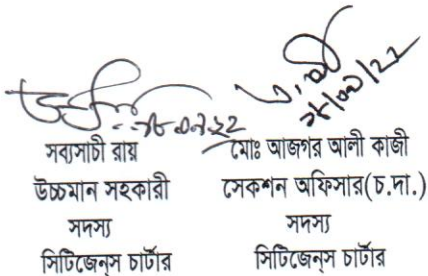 সব্যসাচী রায়
উচ্চমান সহকারী
সদস্য
সিটিজেন্স চার্টার
মোঃ আজগর আলী কাজী
সেকশন অফিসার(চ.দা.)
সদস্য
সিটিজেন্স চার্টার